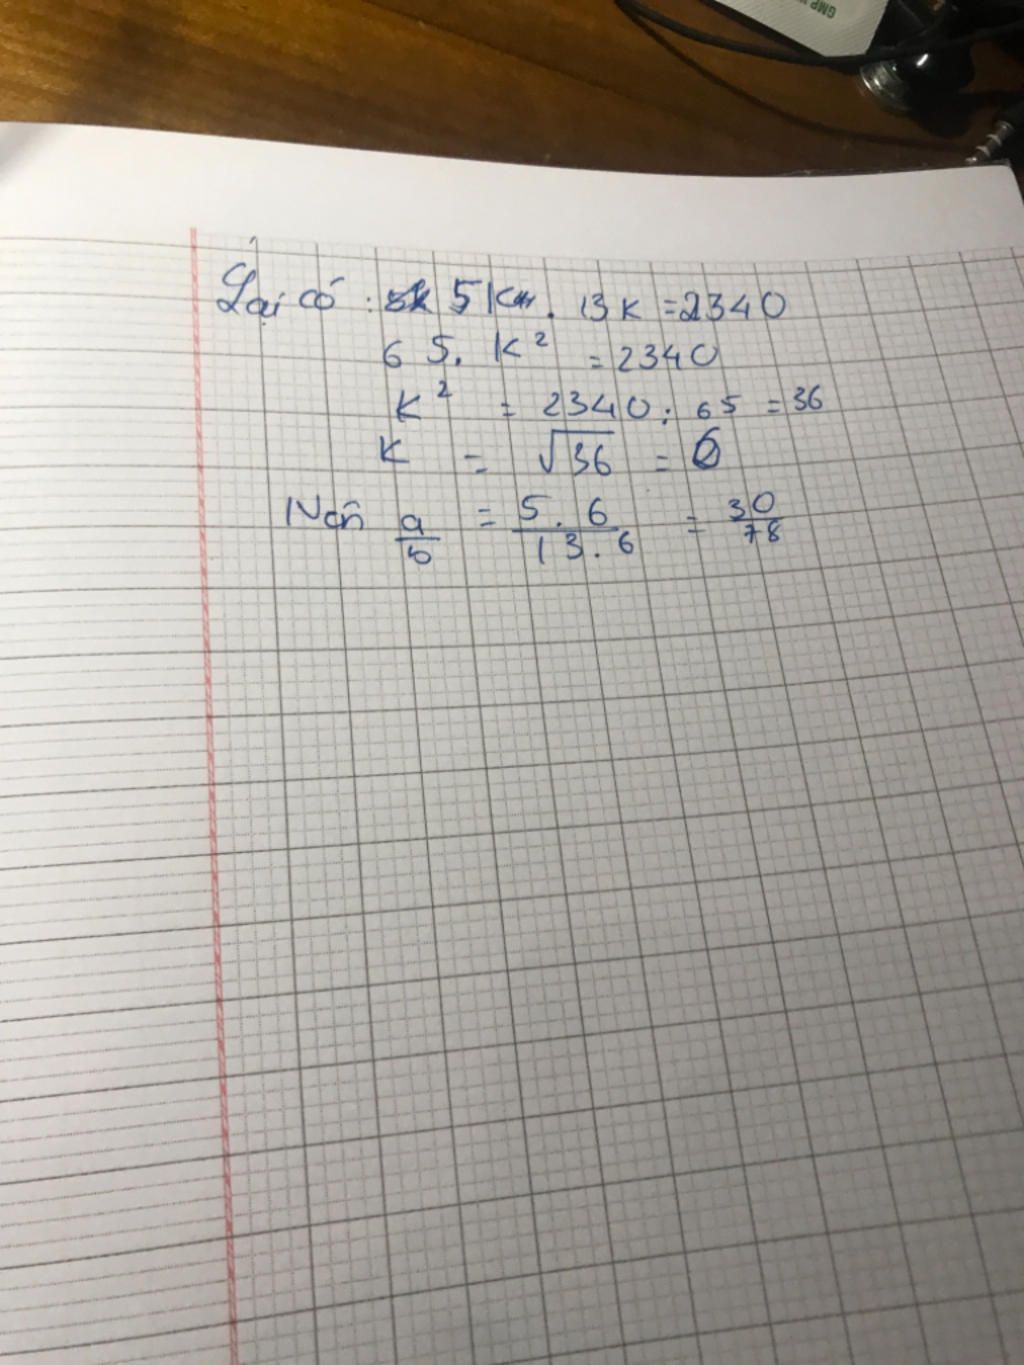 GMP
Lại có : 5k . 13k = 2340
65. k² = 2340
k² = 2340 : 65 = 36
k = √36 = 6
Nên a/b = 5.6/13.6 = 30/78